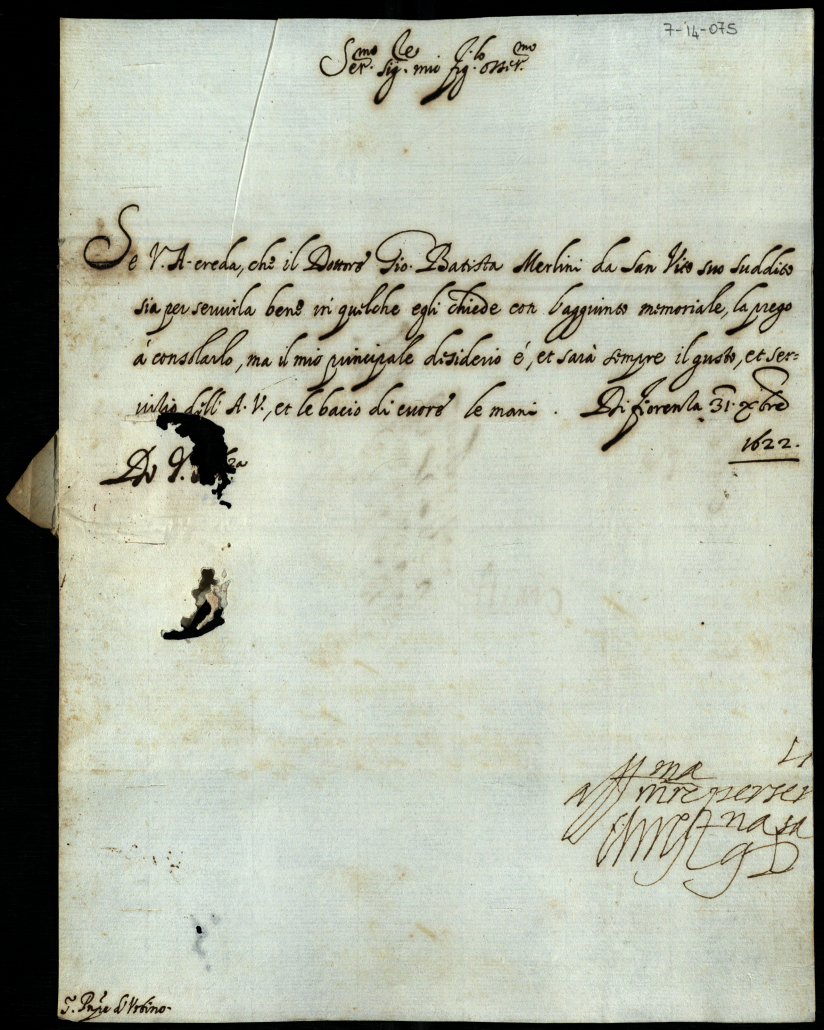 7-14-075
Ser.mo Sig.re mio fig.lo osser.mo
Se V. A. creda, che il Dottore Gio. Batista Merlini da San Vito suo suddito
sia per servirla bene in quelche egli chiede con l'aggiunto memoriale, la prego
à consolarlo, ma il mio principale desiderio é, et sarà sempre il gusto, et ser=
vitio dell' A. V., et le bacio di cuore le mani. Di fiorenza 31. xbre
1622.
Di V.
aff.ma
mre per ser
Christna
S. Pn̄pe d'Urbino.